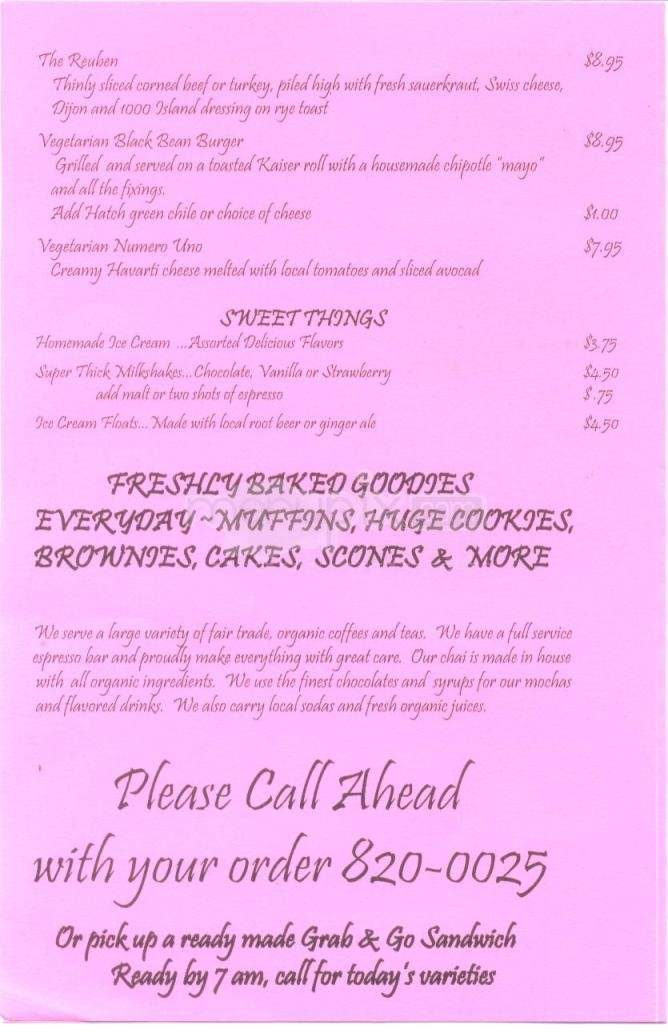 The Reuben $8.95
Thinly sliced corned beef or turkey, piled high with fresh sauerkraut, Swiss cheese,
Dijon and 1000 Island dressing on rye toast
Vegetarian Black Bean Burger $8.95
Grilled and served on a toasted Kaiser roll with a housemade chipotle "mayo"
and all the fixings.
Add Hatch green chile or choice of cheese $1.00
Vegetarian Numero Uno $7.95
Creamy Havarti cheese melted with local tomatoes and sliced avocad
SWEET THINGS
Homemade Ice Cream ...Assorted Delicious Flavors $3.75
Super Thick Milkshakes...Chocolate, Vanilla or Strawberry $4.50
add malt or two shots of espresso $ .75
Ice Cream Floats... Made with local root beer or ginger ale $4.50
FRESHLY BAKED GOODIES
EVERYDAY ~ MUFFINS, HUGE COOKIES,
BROWNIES, CAKES, SCONES & MORE
We serve a large variety of fair trade, organic coffees and teas. We have a full service
espresso bar and proudly make everything with great care. Our chai is made in house
with all organic ingredients. We use the finest chocolates and syrups for our mochas
and flavored drinks. We also carry local sodas and fresh organic juices.
Please Call Ahead
with your order 820-0025
Or pick up a ready made Grab & Go Sandwich
Ready by 7 am, call for today's varieties